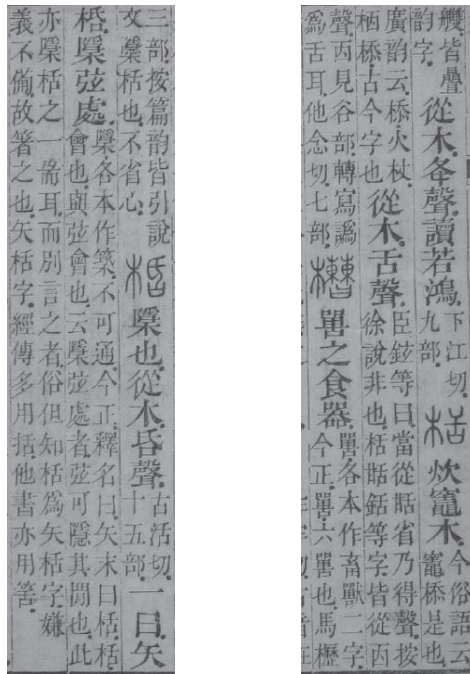 艭皆疊韵字。從木。夅聲。讀若鴻。下江切。九部。栝炊竈木。今俗語云竈㮇是也。
廣韵云。㮇、火杖。栖㮇古今字也。從木。舌聲。臣鉉等曰。當從甛省乃得聲。按徐說非也。栝甛銛等字皆從㐁
聲。㐁見谷部。轉寫譌爲舌耳。他念切。七部。槽嘼之食器。嘼各本作畜獸二字。今正。嘼、六嘼也。馬櫪
三部。按篇韵皆引說文檃栝也。不省心。桰檃也。從木。昏聲。古活切。十五部。一曰矢
桰。檃弦處。檃各本作築。不可通。今正。釋名曰。矢末曰栝。栝會也。與弦會也。云檃弦處者。弦可隱其閒也。此
亦檃栝之一耑耳。而別言之者。俗但知栝爲矢栝字。嫌義不備。故箸之也。矢栝字經傳多用括。他書亦用筈。